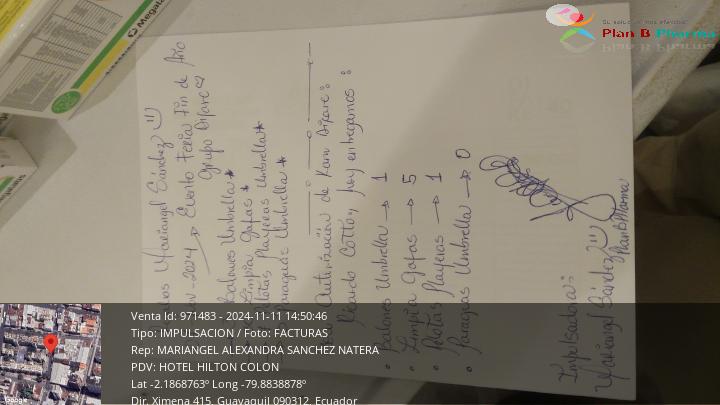 Mariangel Sánchez
-2024 → Evento Feria Fin de Año
Grupo Difare
Balones Umbrella *
Limpia Gafas *
Pelotas Playeras Umbrella *
Paraguas Umbrella *
Autorización de Kam Difare:
Ricardo Cotto, hoy entregamos:
• Balones Umbrella → 1
• Limpia gafas → 5
• Pelotas Playeras → 1
• Paraguas Umbrella → 0
Impulsadora:
Mariangel Sánchez
Plan B Pharma
Su salud
Plan B Pharma
Venta Id: 971483 - 2024-11-11 14:50:46
Tipo: IMPULSACION / Foto: FACTURAS
Rep: MARIANGEL ALEXANDRA SANCHEZ NATERA
PDV: HOTEL HILTON COLON
Lat -2.1868763º Long -79.8838878º
Dir. Ximena 415, Guayaquil 090312, Ecuador
Google